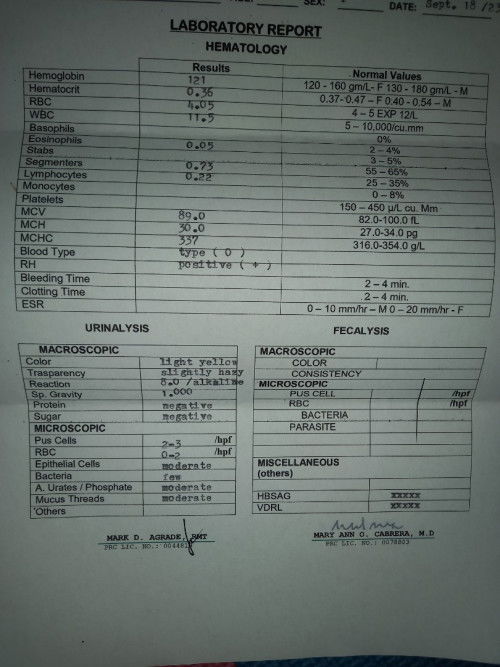 SEX:
DATE: Sept. 18 /23
LABORATORY REPORT
HEMATOLOGY
Results Normal Values
Hemoglobin 121 120 - 160 gm/L- F 130 - 180 gm/L - M
Hematocrit 0.36 0.37- 0.47 – F 0.40 - 0.54 – M
RBC 4.05 4 – 5 EXP 12/L
WBC 11.5 5 – 10,000/cu.mm
Basophils 0%
Eosinophils 0.05 2 – 4%
Stabs 3 – 5%
Segmenters 0.73 55 – 65%
Lymphocytes 0.22 25 – 35%
Monocytes 0 – 8%
Platelets 150 – 450 µ/L cu. Mm
MCV 89.0 82.0-100.0 fL
MCH 30.0 27.0-34.0 pg
MCHC 337 316.0-354.0 g/L
Blood Type type ( O )
RH positive ( + )
Bleeding Time 2 – 4 min.
Clotting Time 2 – 4 min.
ESR 0 – 10 mm/hr – M 0 – 20 mm/hr - F
URINALYSIS
MACROSCOPIC
Color light yellow
Trasparency slightly hazy
Reaction 8.0 /alkaline
Sp. Gravity 1.000
Protein negative
Sugar negative
MICROSCOPIC
Pus Cells 2-3 /hpf
RBC 0-2 /hpf
Epithelial Cells moderate
Bacteria few
A. Urates / Phosphate moderate
Mucus Threads moderate
'Others
MARK D. AGRADE, RMT
PRC LIC. NO.:
FECALYSIS
MACROSCOPIC
COLOR
CONSISTENCY
MICROSCOPIC
PUS CELL /hpf
RBC /hpf
BACTERIA
PARASITE
MISCELLANEOUS
(others)
HBSAG xxxxx
VDRL xxxxx
MARY ANN O. CABRERA, M.D
PRC LIC. NO.: 0078803